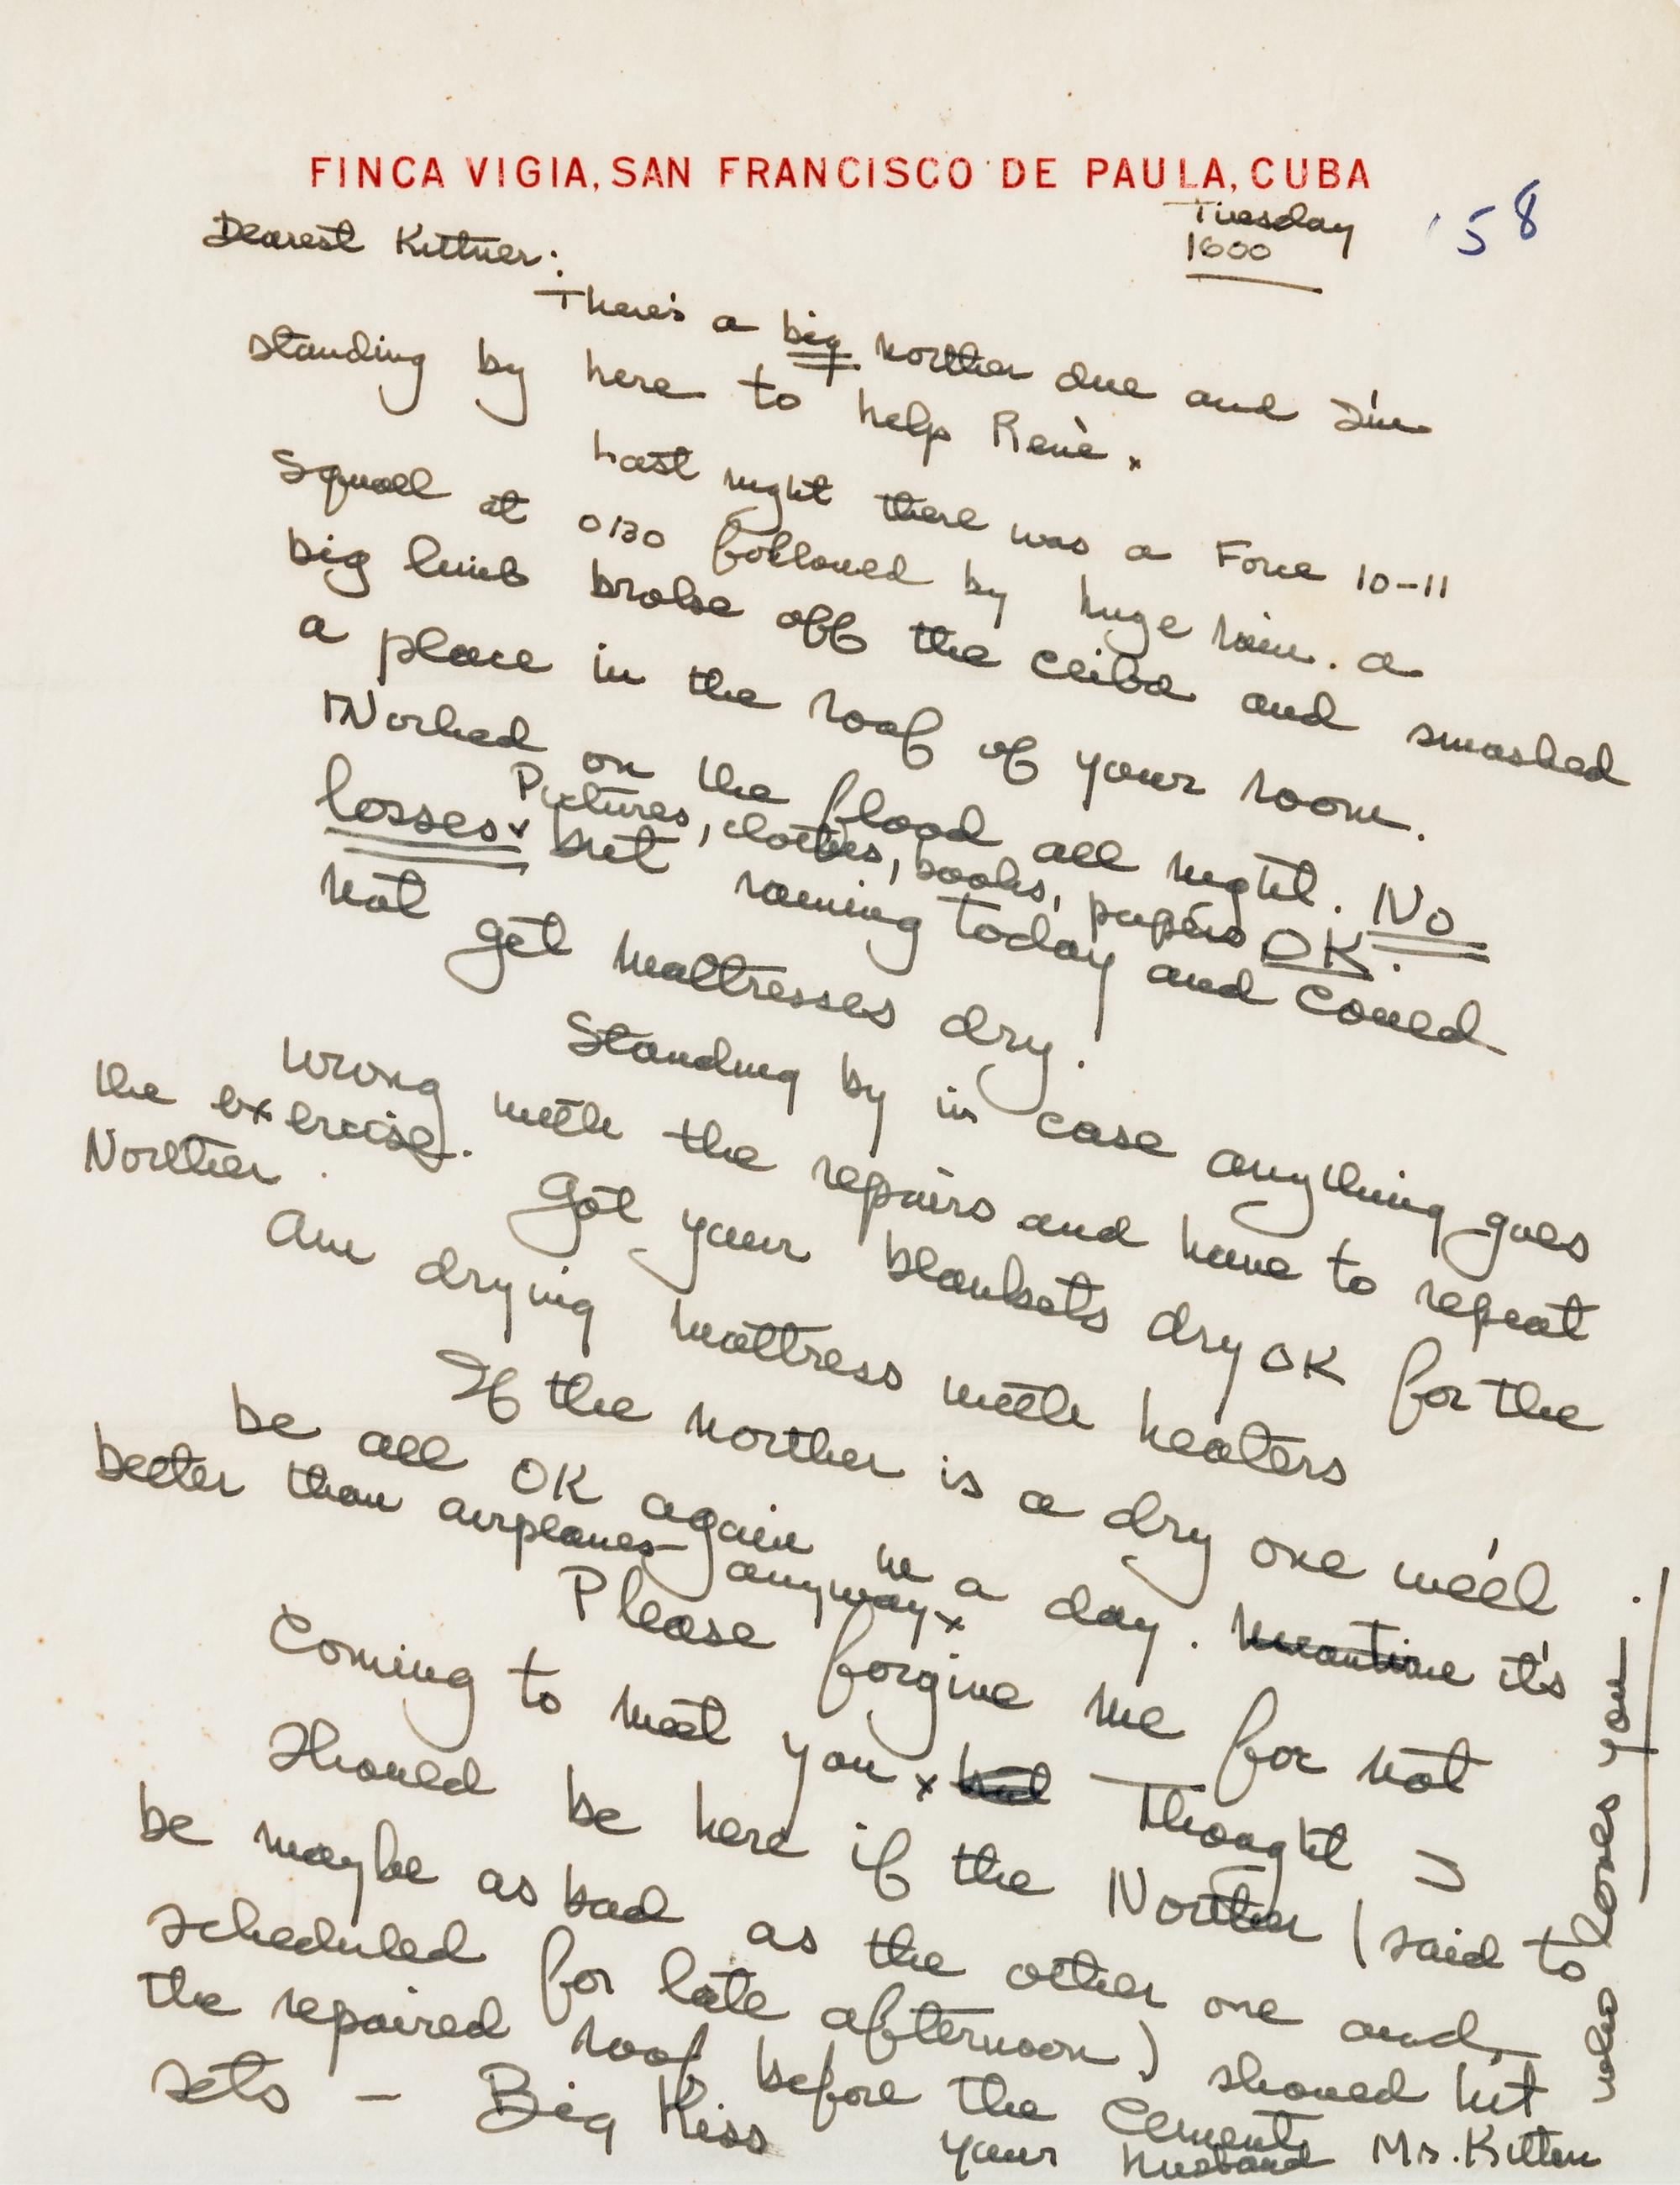 FINCA VIGIA, SAN FRANCISCO DE PAULA, CUBA
Tuesday
1600
'58
Dearest Kittner:
There's a big norther due and I'm
standing by here to help Renè.
Last night there was a Force 10-11
squall at 0130 followed by huge rain. a
big limb broke off the ceiba and smashed
a place in the roof of your room.
Worked on the flood all night. No
losses. Pictures, clothes, books, papers OK.
but raining today and could
not get mattresses dry.
Standing by in case anything goes
wrong with the repairs and have to repeat
the exercise.
Got your blankets dry OK for the
Norther.
Am drying mattress with heaters
If the norther is a dry one we'll
be all OK again in a day. meantime it's
better than airplanes anyway x
Please forgive me for not
coming to meet you x but Thought I
should be here if the Norther (said to
be maybe as bad as the other one and
scheduled for late afternoon) should hit
the repaired roof before the cement
sets - Big Kiss
your husband Mr. Kitten
who loves you